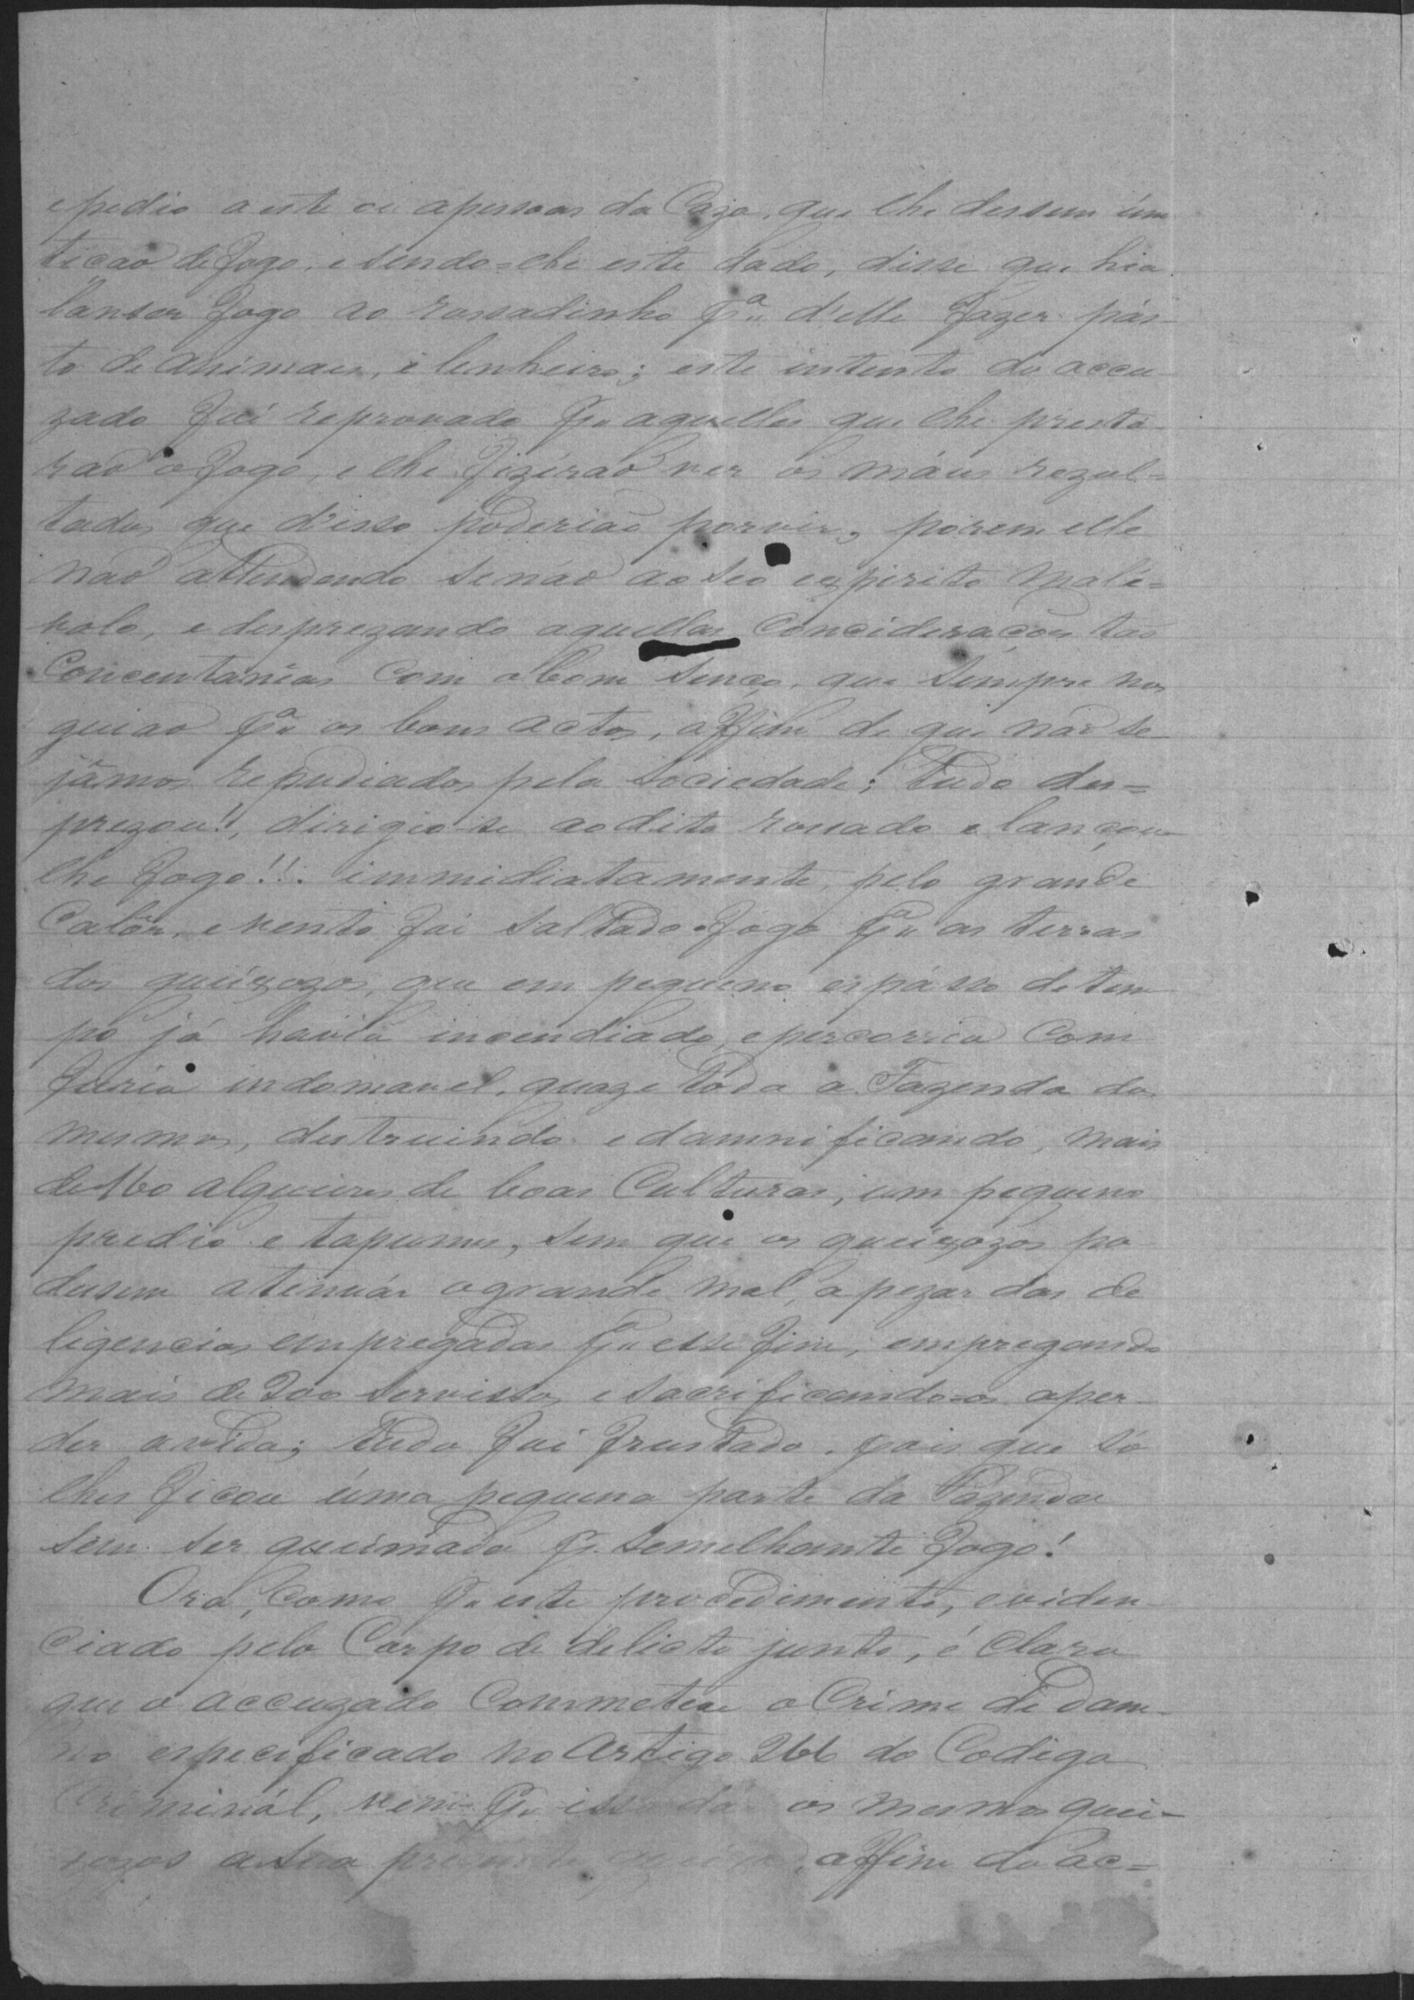 e pedio a este ou apessoas da Caza, que lhe dessem úm
ticaõ de fogo, e sendo=lhe este dado, disse que hia
lansar fogo ao rossadinho pª. d'elle fazer pás-
to de animaes, e lenheiro; este intento do accu
zado fui reprovado pr. aquelles que lhe presta-
raõ o fogo, e lhe fizeraõ ver os máus rezul=
tados que d'isso poderiaõ porvir, porem elle
naõ attendendo senaõ ao seo espirito malé=
volo, e desprezando aquellas Concideracoẽs taõ
Concentanias Com o bom senço, que sempre nos
guiaõ pª. os bons actos, affim de que naõ se-
jâmos repudiados pela Sociedade; tudo des=
prezou!, dirigio-se ao dito rossado e lançou-
lhe fogo!!. immidiatamente, pelo grande
Calôr, e vento fui saltado o fogo pª. as terras
dos queixozos, que em pequeno espásso de tem
po já havia incendiado, e percorria Com
furia indomavel, quaze toda a Fazenda dos
mesmos, destruindo e damnificando, mais
de 160 alqueires de boas Culturas, um pequeno
predio e tapumes, sem que os queixózos po
desem atinuár o grande mal, a pezar das de
ligencias empregadas pª. esse fim, empregando
mais de 200 servissos, e sacrificando-os a per-
der a vida; tudo fui frustado, pois que só
lhes ficou úma pequena parte da Fazenda
sem ser queimada pr. semelhante fogo!
Ora, Como pr. este procedimento, eviden
ciado pelo Corpo de delicto junto, é Claro
que o accuzado Commeteu o Crime de dam-
no especificado no Artigo 266 do Codigo
Criminál, vem pr. isso dar os mesmos quei-
xozos a sua prezente queixa, affim do ac=